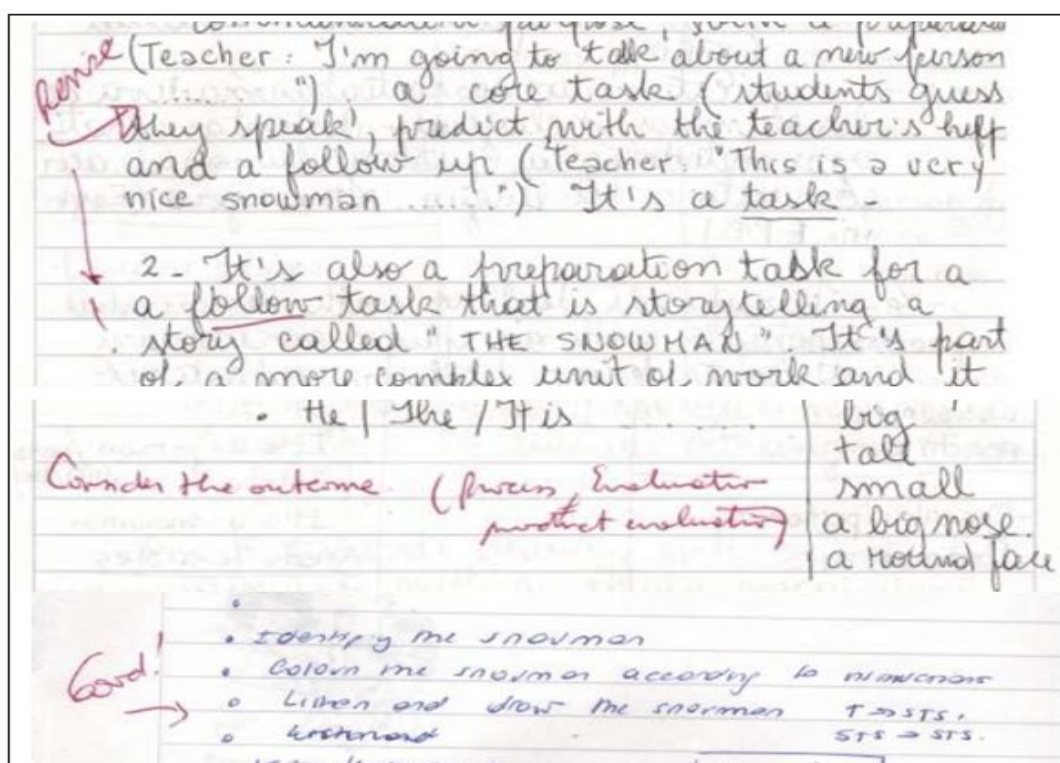 communicative purpose, within a preparation
Revise (Teacher: "I'm going to talk about a new person
........."). a core task (students guess
they speak, predict with the teacher's help
and a follow up (Teacher: "This is a very
nice snowman ...") It's a task -
2 - It's also a preparation task for a
a follow task that is storytelling a
story called "THE SNOWMAN". It's part
of a more complex unit of work and it
• He / She / It is ......
big
tall
small
a big nose.
a round face
Consider the outcome. (process, Evaluation
product evaluation)
Good!
• Identify the snowman
• Colour the snowman according to instructions
• Listen and draw the snowman T → STS.
STS → STS.